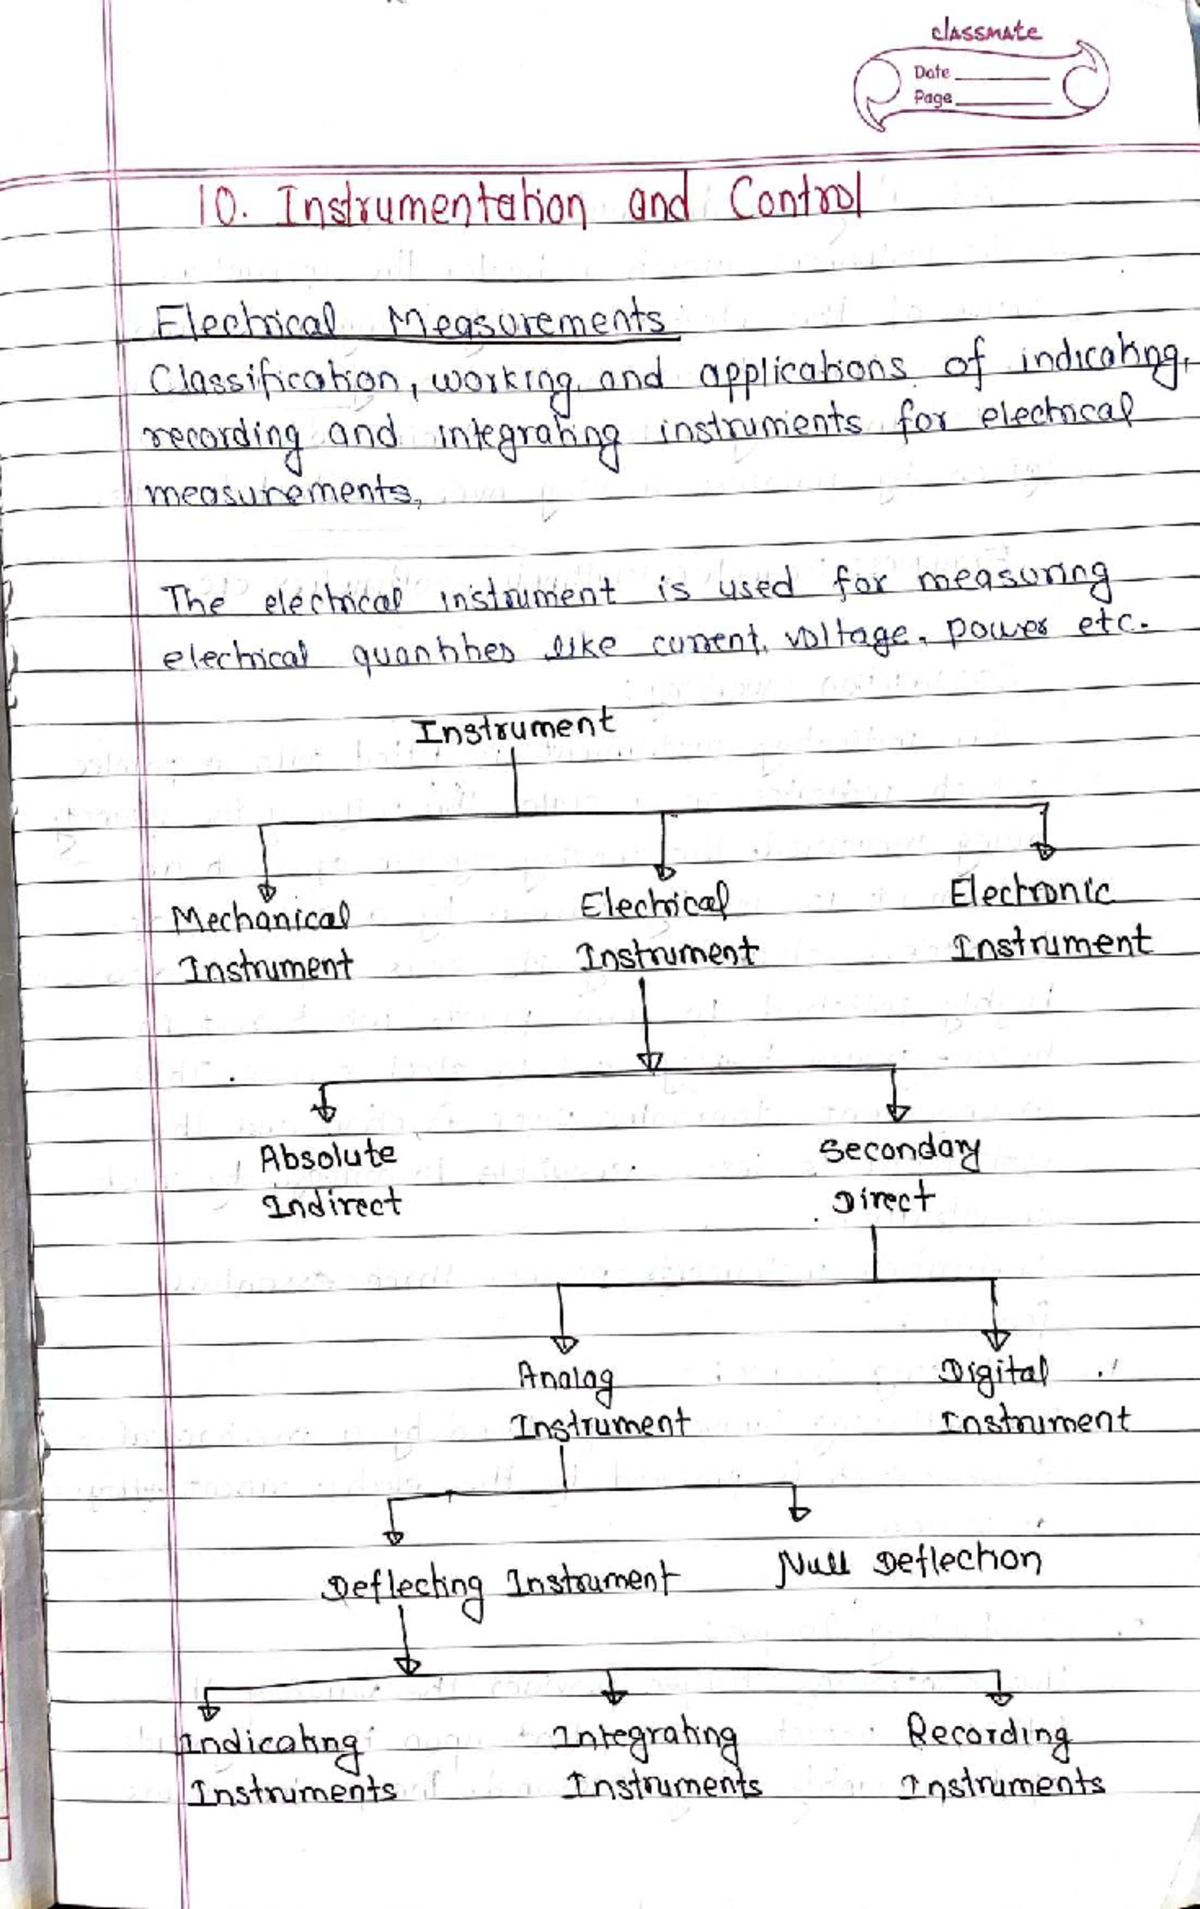 classmate
Date
Page
10. Instrumentation and Control
Electrical Measurements
Classification, working and applications of indicating,
recording and integrating instruments for electrical
measurements,
The electrical instrument is used for measuring
electrical quantities like current, voltage, power etc.
Instrument
Mechanical Electrical Electronic
Instrument Instrument Instrument
Absolute Secondary
Indirect Direct
Analog Digital
Instrument Instrument
Deflecting Instrument Null Deflection
Indicating Integrating Recording
Instruments Instruments Instruments